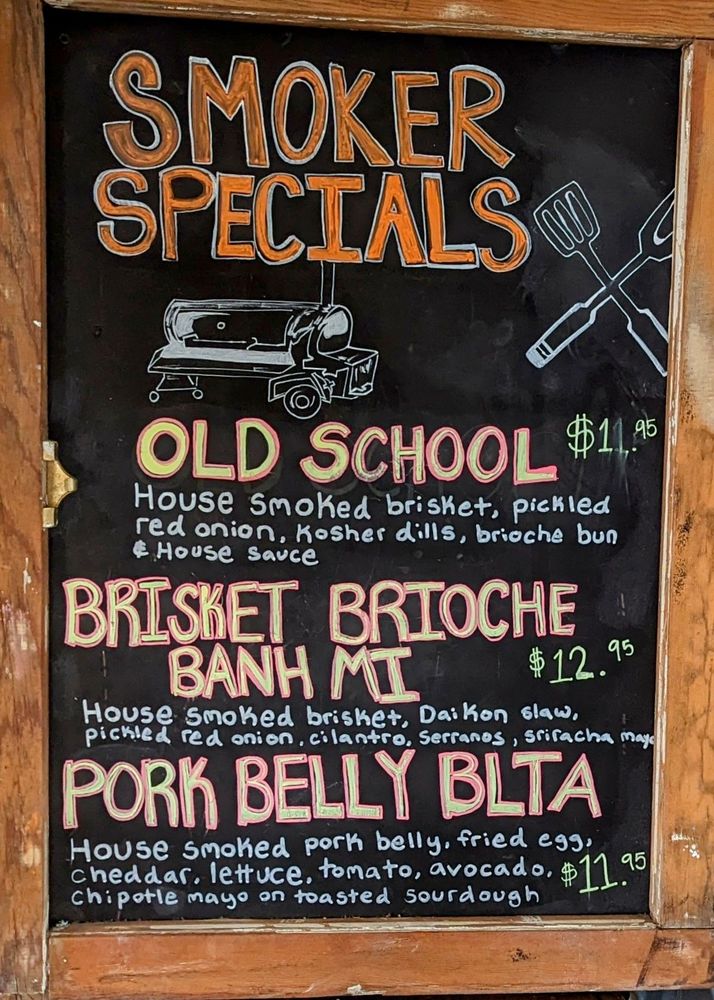 SMOKER
SPECIALS
OLD SCHOOL $11.95
House smoked brisket, pickled
red onion, Kosher dills, brioche bun
& House sauce
BRISKET BRIOCHE
BANH MI $12.95
House smoked brisket, Daikon slaw,
pickled red onion, cilantro, serranos, sriracha mayo
PORK BELLY BLTA
House smoked pork belly, fried egg,
cheddar, lettuce, tomato, avocado, $11.95
chipotle mayo on toasted sourdough